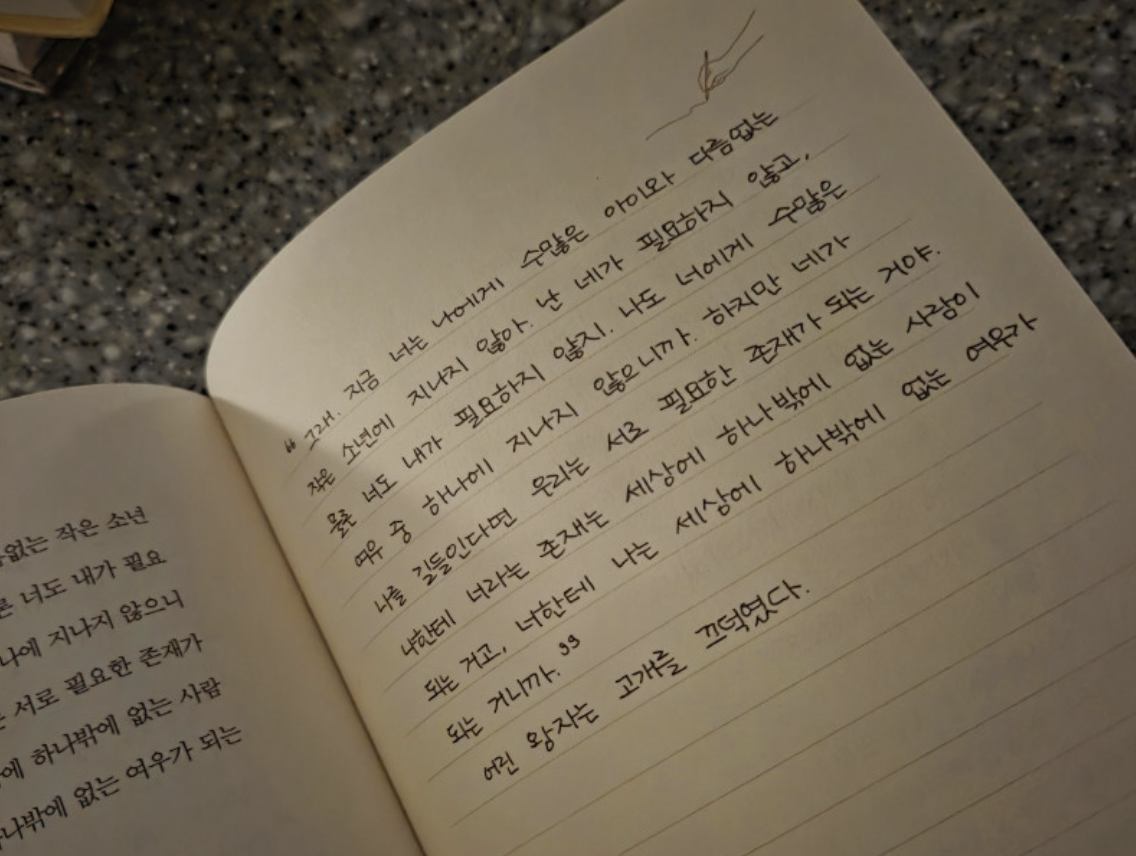 음없는 작은 소년
론 너도 내가 필요
나에 지나지 않으니
는 서로 필요한 존재가
에 하나밖에 없는 사람
하나밖에 없는 여우가 되는
“그래. 지금 너는 나에게 수많은 아이와 다름없는
작은 소년에 지나지 않아. 난 네가 필요하지 않고,
물론 너도 내가 필요하지 않지. 나도 너에게 수많은
여우 중 하나에 지나지 않으니까. 하지만 네가
나를 길들인다면 우리는 서로 필요한 존재가 되는 거야.
나한테 너라는 존재는 세상에 하나밖에 없는 사람이
되는 거고, 너한테 나는 세상에 하나밖에 없는 여우가
되는 거니까.”
어린 왕자는 고개를 끄덕였다.